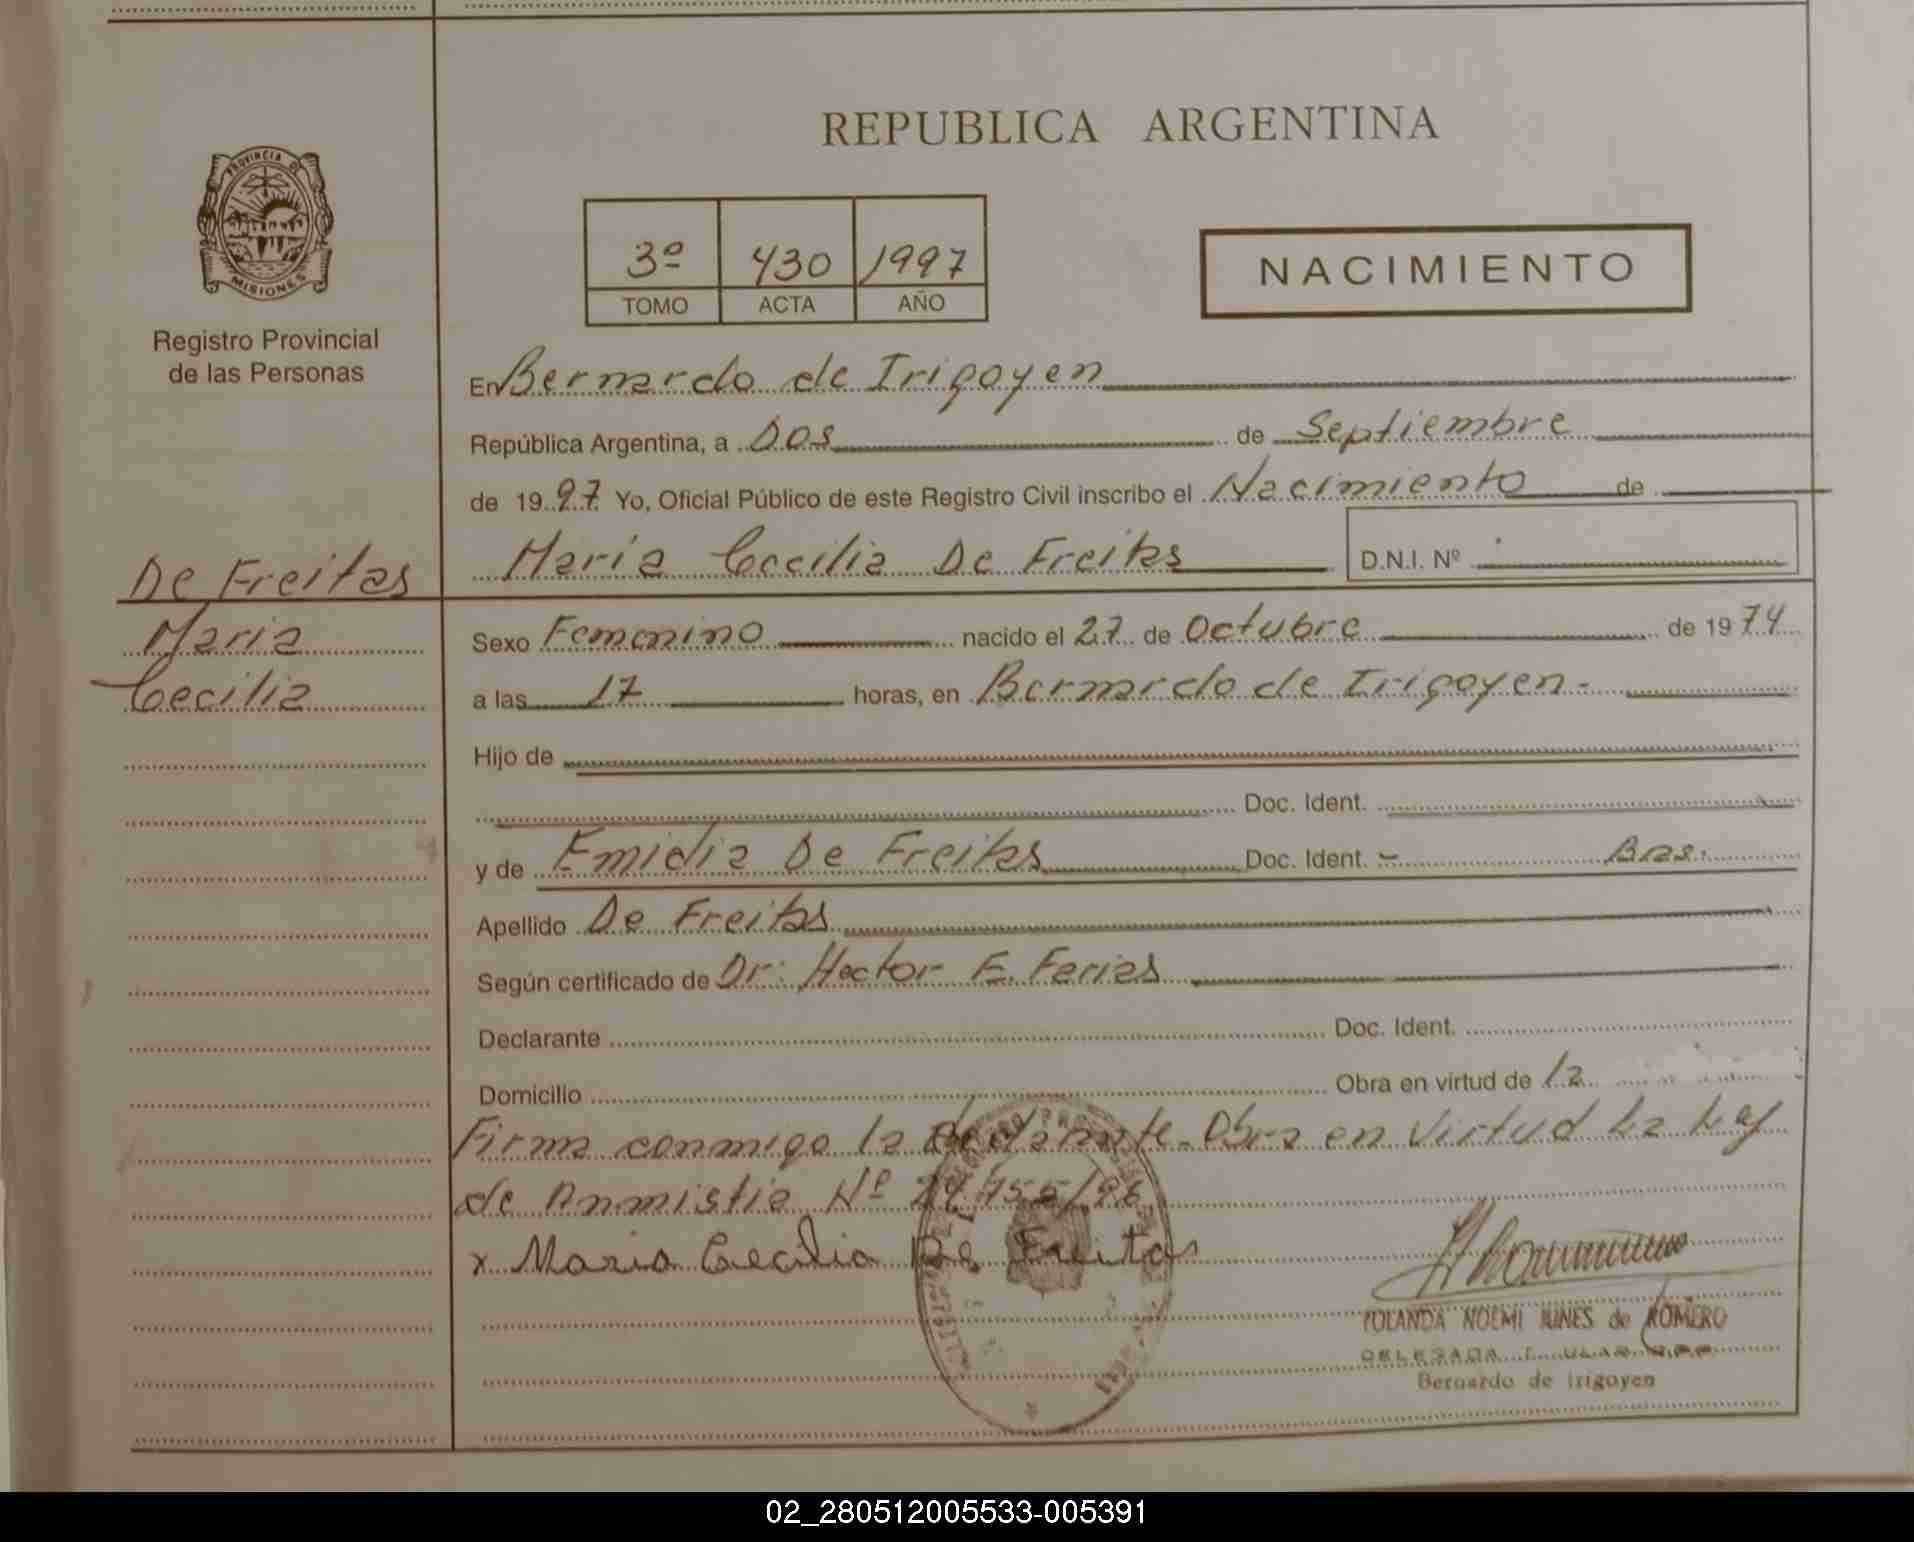 REPUBLICA ARGENTINA
PROVINCIA DE
MISIONES
Registro Provincial
de las Personas
3º 430 1997
TOMO ACTA AÑO
NACIMIENTO
En Bernardo de Irigoyen
República Argentina, a Dos de Septiembre
de 1997 Yo, Oficial Público de este Registro Civil inscribo el Nacimiento de
Maria Cecilia De Freitas D.N.I. Nº
De Freitas
Maria
Cecilia
Sexo Femenino nacido el 27 de Octubre de 1974
a las 17 horas, en Bernardo de Irigoyen-
Hijo de
Doc. Ident.
y de Emidia De Freitas Doc. Ident. - Bras.
Apellido De Freitas
Según certificado de Dr: Hector E. Ferias
Declarante Doc. Ident.
Domicilio Obra en virtud de la
Firma conmigo la Obra en Virtud La Ley
de Anmistia Nº
x Maria Cecilia De Freitas
YOLANDA NOEMI de ROMERO
DELEGADA
Bernardo de Irigoyen
02_280512005533-005391